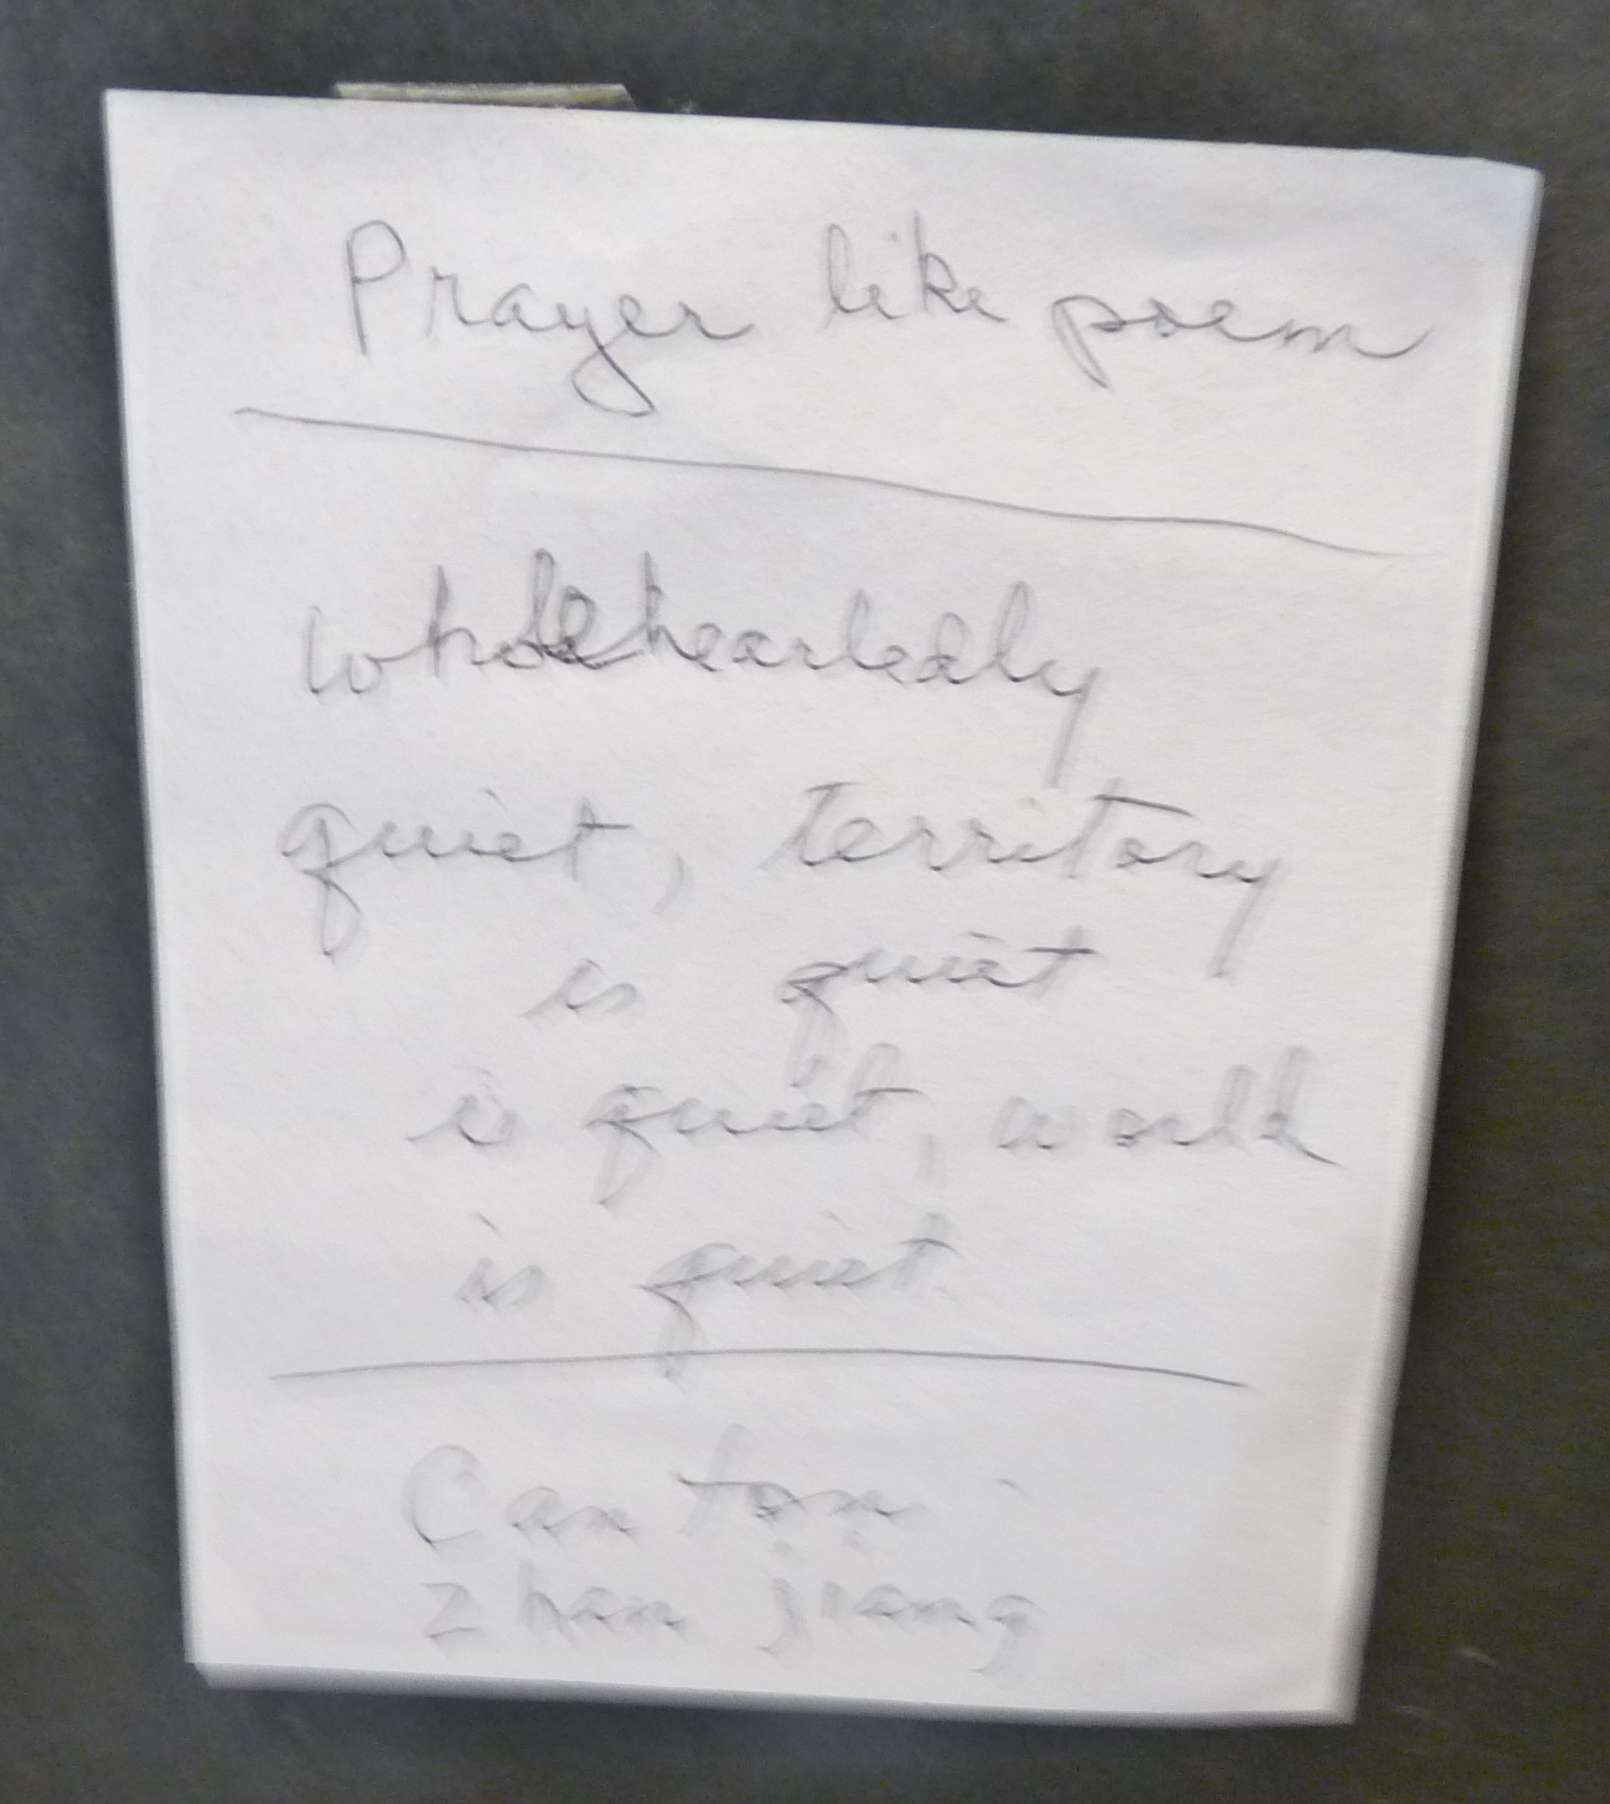 Prayer like poem
wholeheartedly
quiet, territory
is quiet
is quiet, world
is quiet.
Canton
Zhanjiang